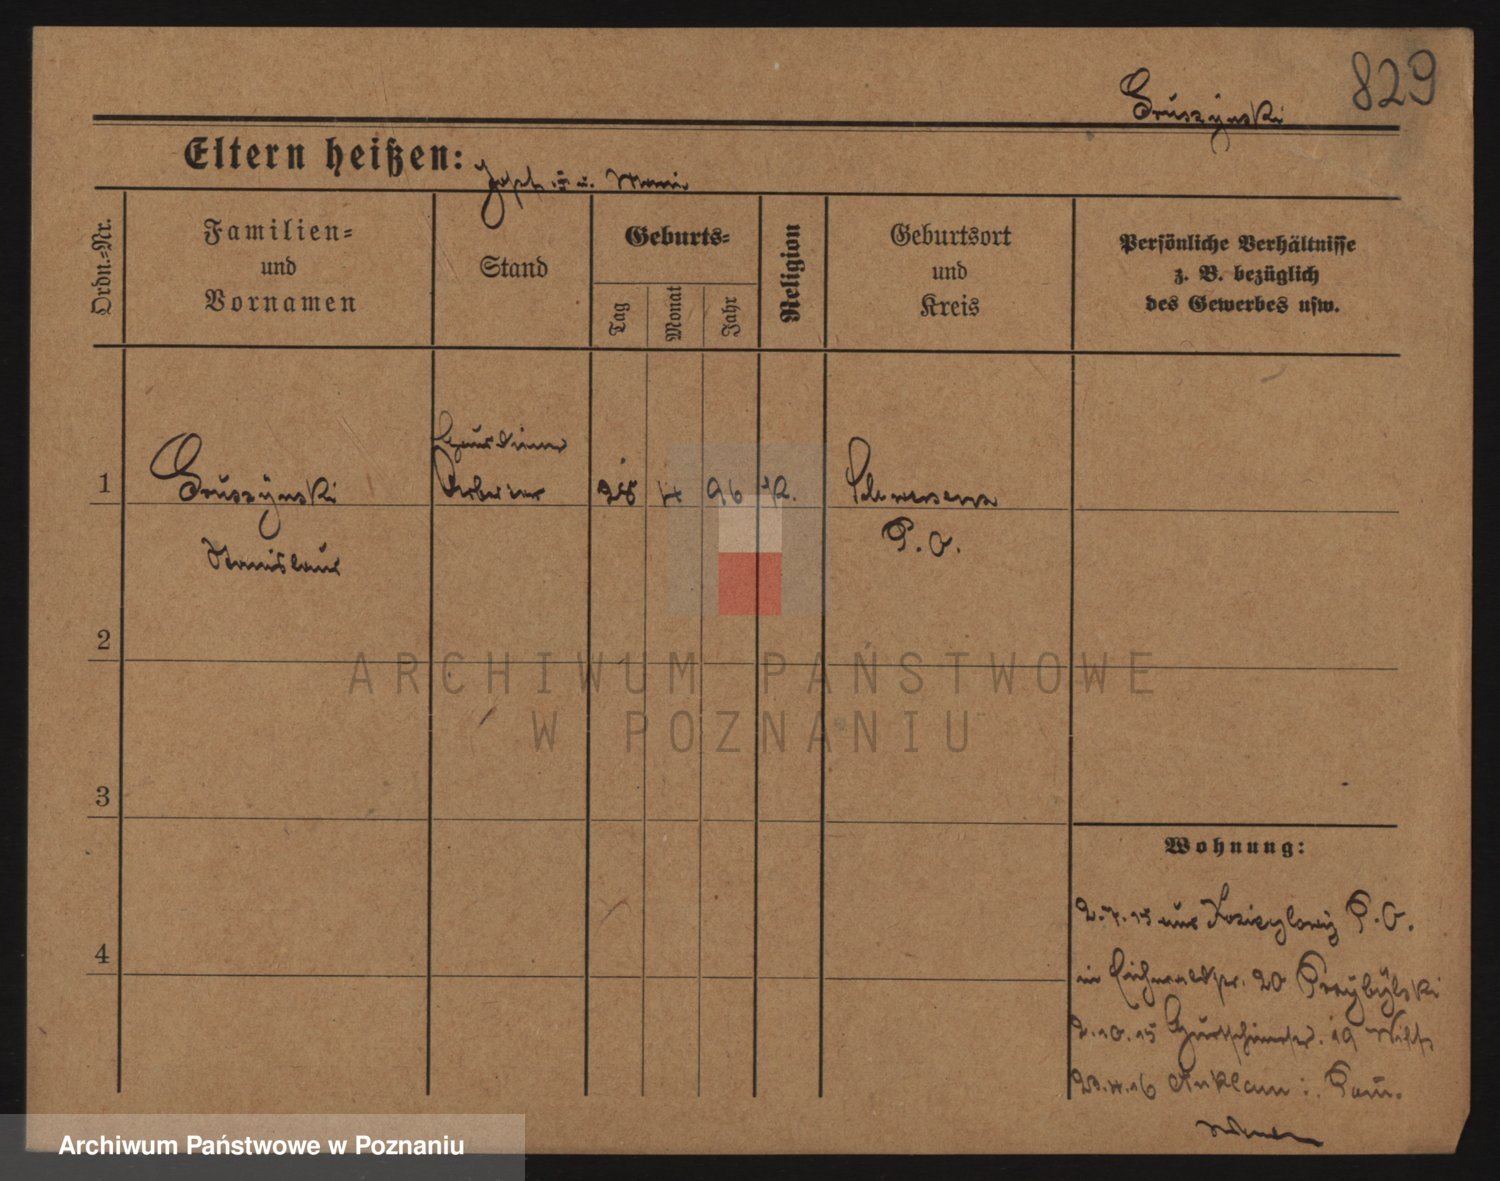 829
Gruszynski
Eltern heißen: Joseph u. Marie
Ordn.-Nr.
Familien-
und
Vornamen
Stand
Geburts-
Tag
Monat
Jahr
Religion
Geburtsort
und
Kreis
Persönliche Verhältnisse
z. B. bezüglich
des Gewerbes usw.
1
Gruszynski
Stanislaus
Arbeiter
28 4 96 K.
P. O.
2
3
4
Wohnung:
2.7.15 aus P. O.
in Eichwaldstr. 20 Przybylski
2.10.15 19
23.4.16 Anklam i. Pom.
ARCHIWUM PAŃSTWOWE
W POZNANIU
Archiwum Państwowe w Poznaniu